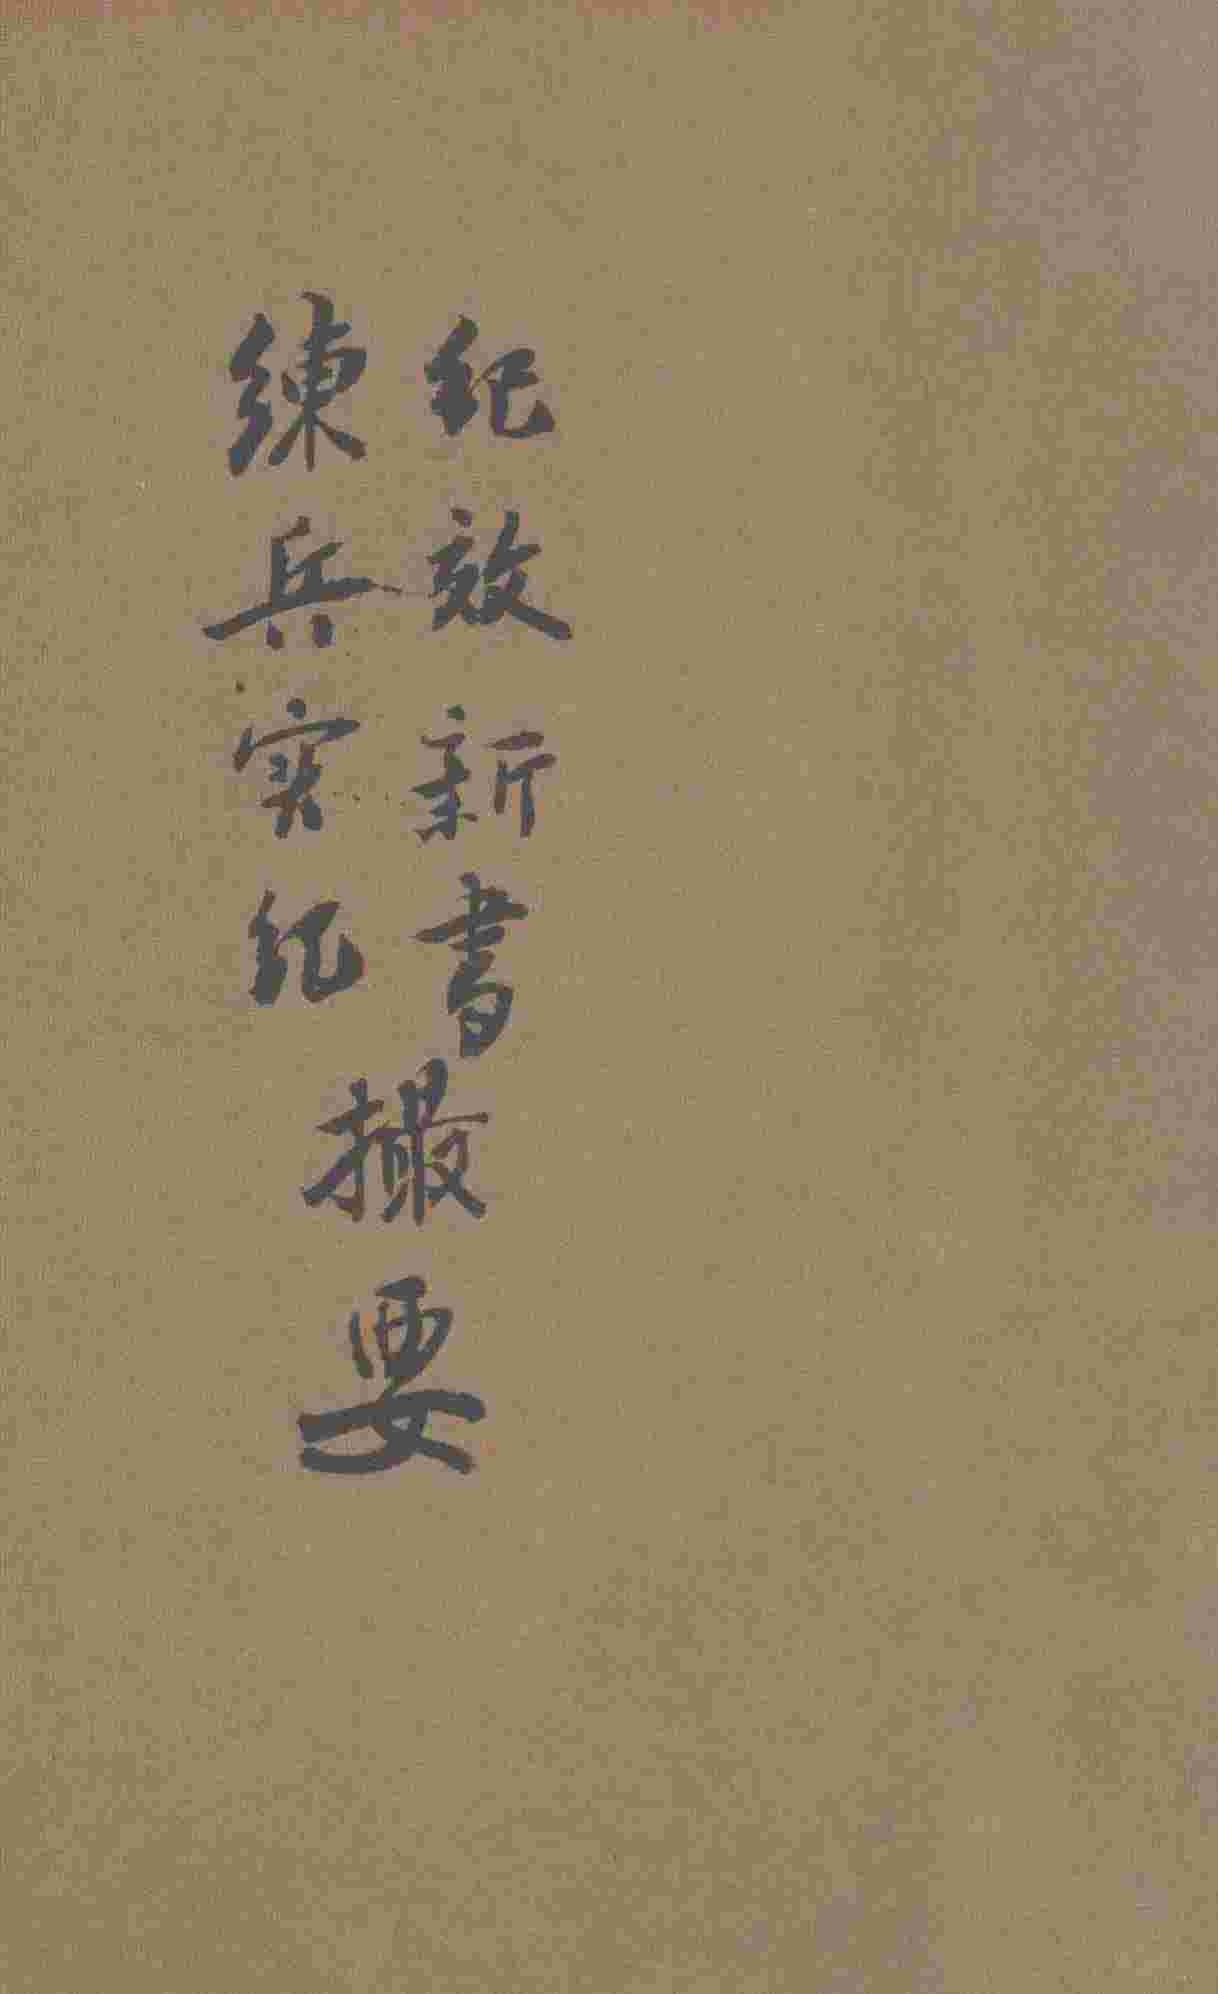 紀效新書
練兵实紀
撮要